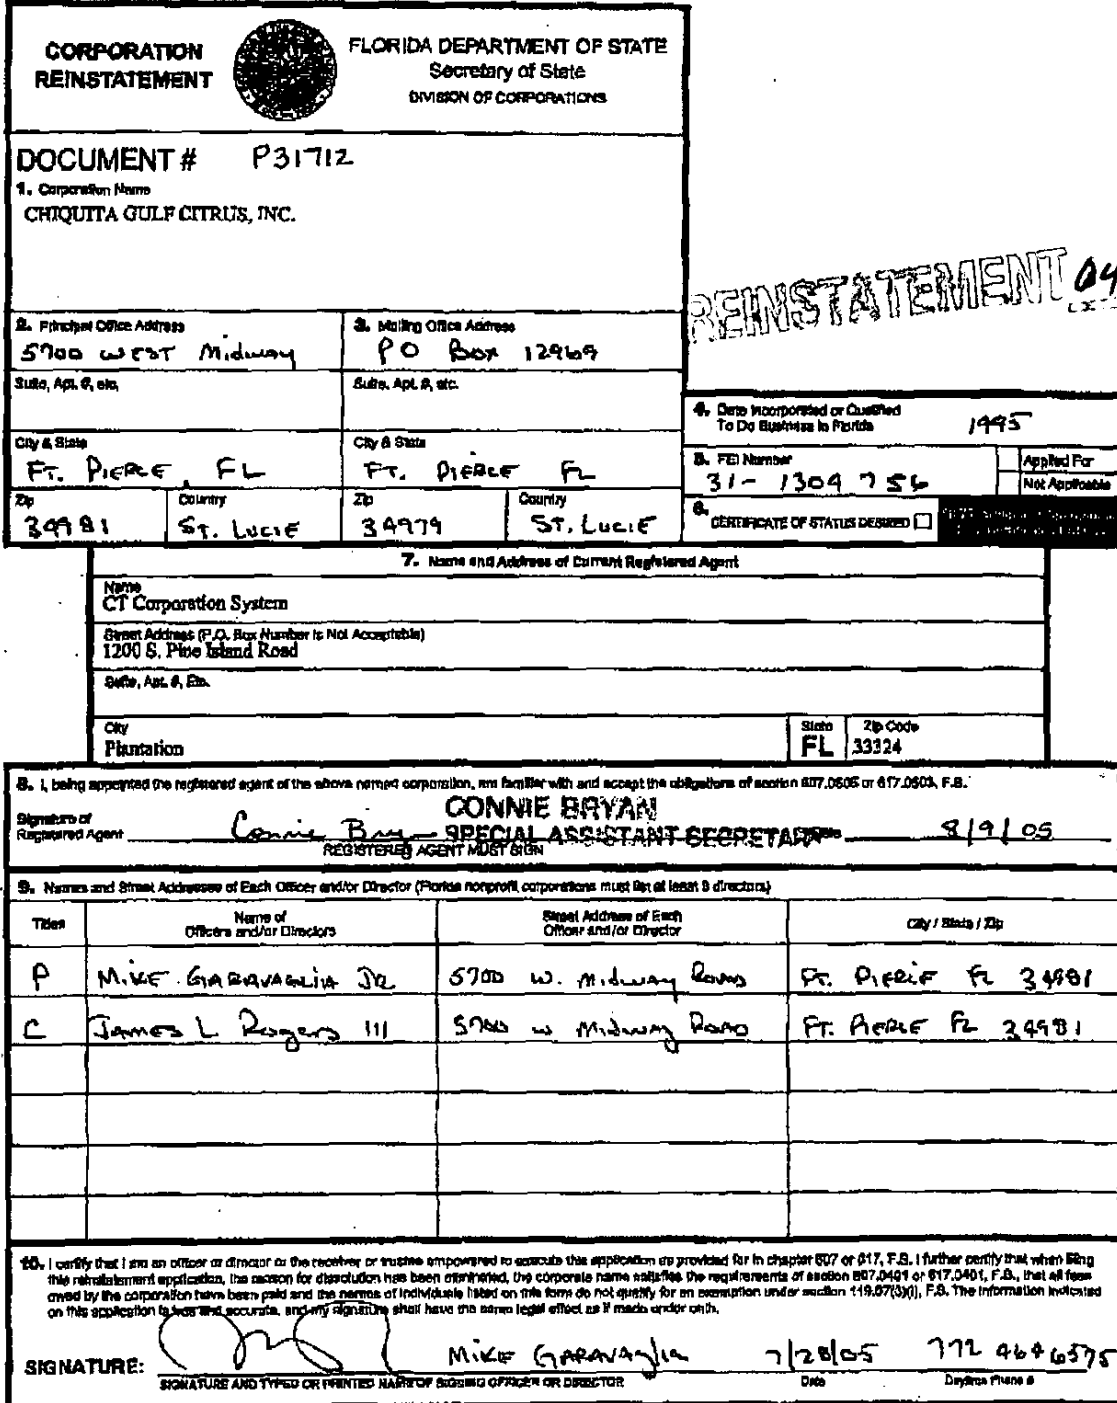 CORPORATION REINSTATEMENT
FLORIDA DEPARTMENT OF STATE
Secretary of State
DIVISION OF CORPORATIONS
DOCUMENT # P31712
1. Corporation Name
CHIQUITA GULF CITRUS, INC.
REINSTATEMENT 04
2. Principal Office Address
5700 WEST Midway
3. Mailing Office Address
PO Box 12969
Suite, Apt. #, etc.
Suite, Apt. #, etc.
City & State
FT. PIERCE, FL
City & State
FT. PIERCE FL
Zip
34981
Country
ST. LUCIE
Zip
34979
Country
ST. LUCIE
4. Date Incorporated or Qualified
To Do Business in Florida 1995
5. FEI Number
31-1304756
Applied For
Not Applicable
6. CERTIFICATE OF STATUS DESIRED
7. Name and Address of Current Registered Agent
Name
CT Corporation System
Street Address (P.O. Box Number Is Not Acceptable)
1200 S. Pine Island Road
Suite, Apt. #, Etc.
City
Plantation
State
FL
Zip Code
33324
8. I, being appointed the registered agent of the above named corporation, am familiar with and accept the obligations of section 607.0505 or 617.0503, F.S.
CONNIE BRYAN
Signature of
Registered Agent Connie Bry SPECIAL ASSISTANT SECRETARY Date 8/9/05
REGISTERED AGENT MUST SIGN
9. Names and Street Addresses of Each Officer and/or Director (Florida nonprofit corporations must list at least 3 directors)
Titles
Name of
Officers and/or Directors
Street Address of Each
Officer and/or Director
City / State / Zip
P MIKE GARAVAGLIA JR 5700 W. Midway Road FT. PIERCE FL 34981
C JAMES L Rogers III 5700 W Midway Road FT. PIERCE FL 34981
10. I certify that I am an officer or director or the receiver or trustee empowered to execute this application as provided for in chapter 607 or 617, F.S. I further certify that when filing
this reinstatement application, the reason for dissolution has been eliminated, the corporate name satisfies the requirements of section 607.0401 or 617.0401, F.S., that all fees
owed by the corporation have been paid and the names of individuals listed on this form do not qualify for an exemption under section 119.07(3)(i), F.S. The information indicated
on this application is true and accurate, and my signature shall have the same legal effect as if made under oath.
SIGNATURE: MIKE GARAVAGLIA 7/28/05 772 464 6575
SIGNATURE AND TYPED OR PRINTED NAME OF SIGNING OFFICER OR DIRECTOR
Date
Daytime Phone #